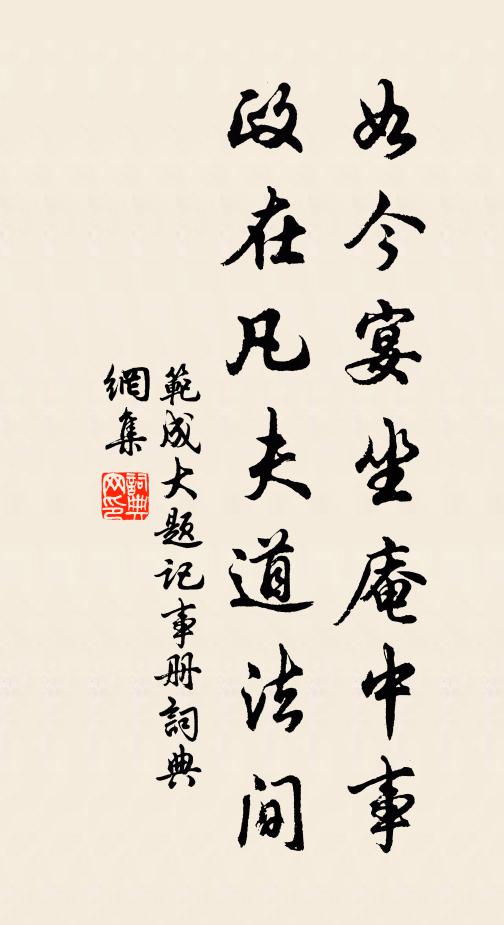 如今宴坐庵中事
政在凡夫道法间
範成大题记事册詞典
網集
詞典
网印